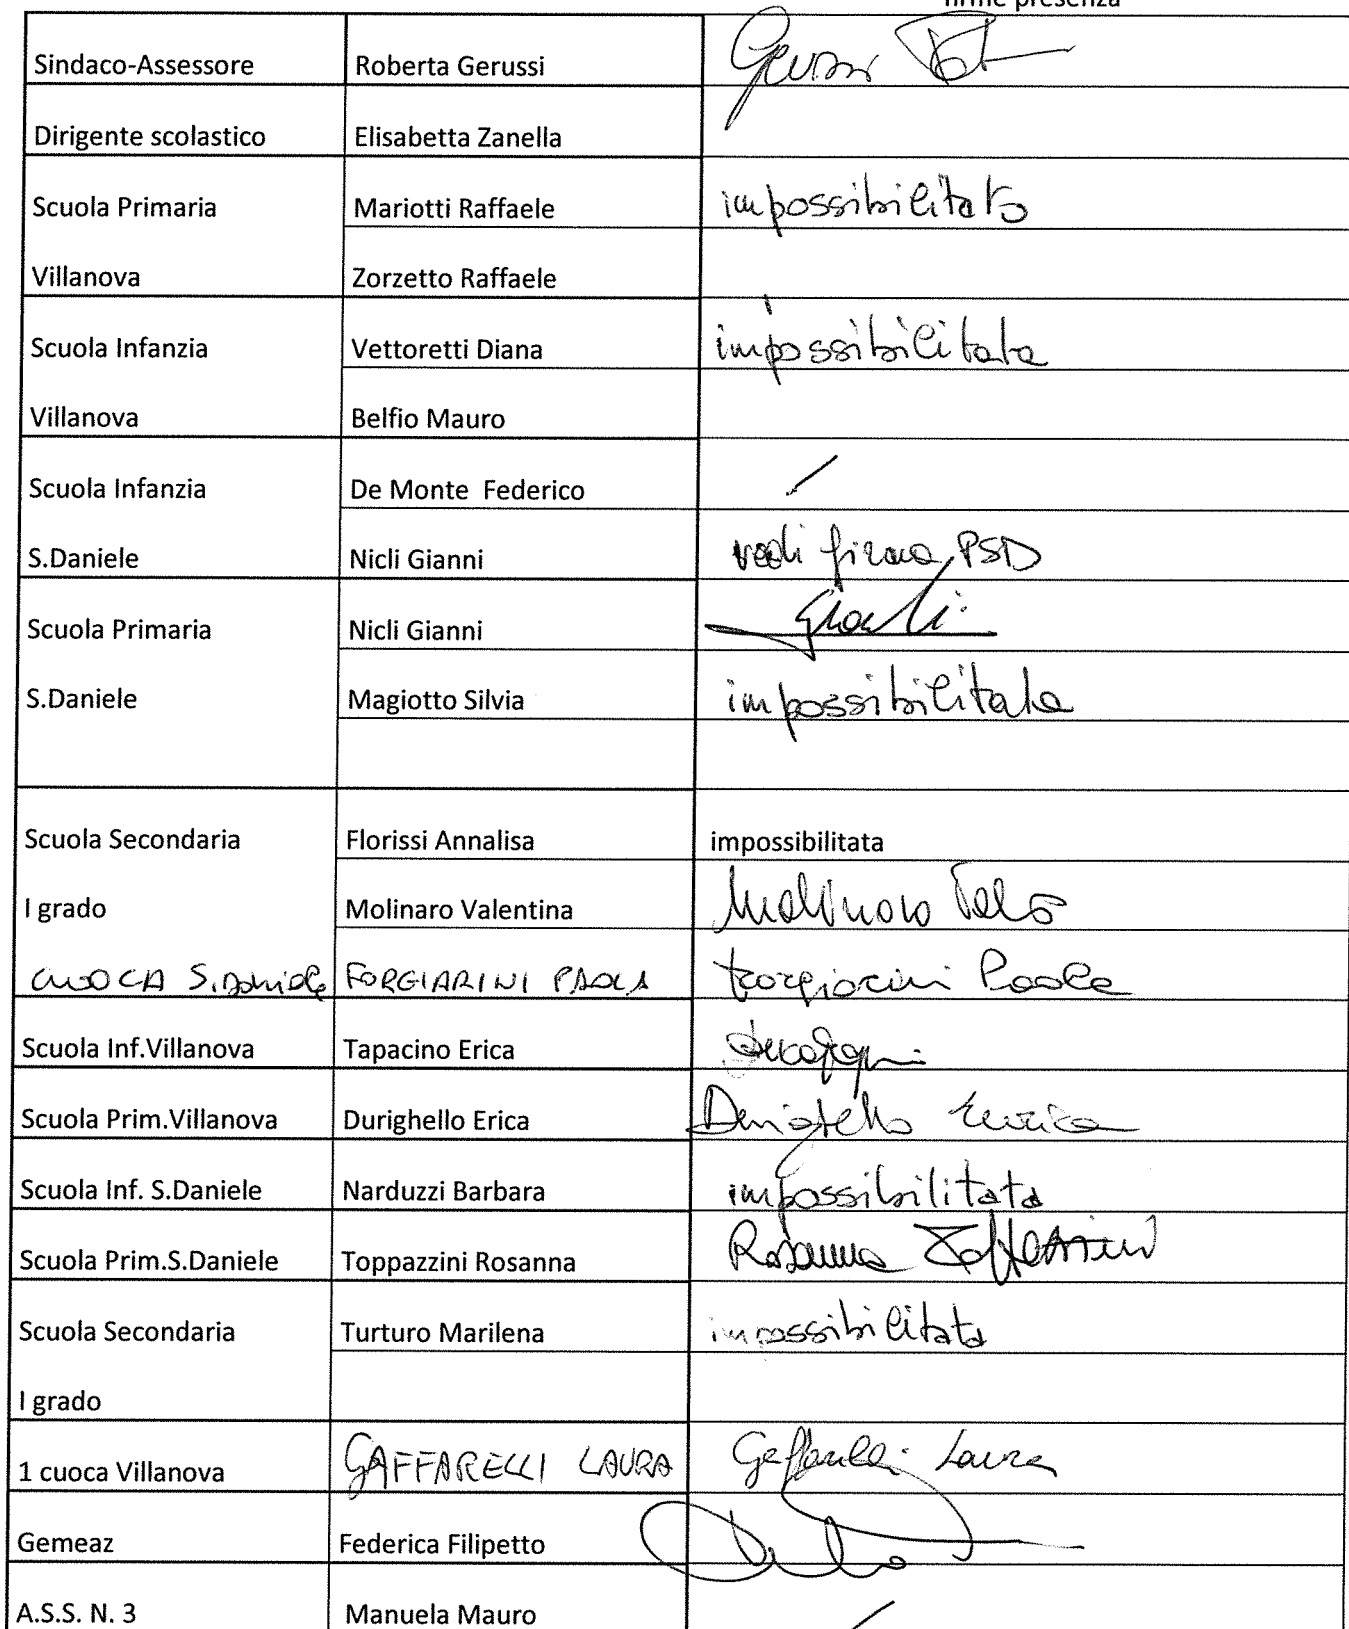 firme presenza
Sindaco-Assessore Roberta Gerussi Gerussi
Dirigente scolastico Elisabetta Zanella
Scuola Primaria Mariotti Raffaele impossibilitato
Villanova Zorzetto Raffaele
Scuola Infanzia Vettoretti Diana impossibilitata
Villanova Belfio Mauro
Scuola Infanzia De Monte Federico
S.Daniele Nicli Gianni vedi firma PSD
Scuola Primaria Nicli Gianni
S.Daniele Magiotto Silvia impossibilitata
Scuola Secondaria Florissi Annalisa impossibilitata
I grado Molinaro Valentina Molinaro
CUOCA S.Daniele FORGIARINI PAOLA Forgiarini Paola
Scuola Inf.Villanova Tapacino Erica
Scuola Prim.Villanova Durighello Erica Durighello Enrica
Scuola Inf. S.Daniele Narduzzi Barbara impossibilitata
Scuola Prim.S.Daniele Toppazzini Rosanna Rosanna Toppazzini
Scuola Secondaria Turturo Marilena impossibilitata
I grado
1 cuoca Villanova GAFFARELLI LAURA Gaffarelli Laura
Gemeaz Federica Filipetto
A.S.S. N. 3 Manuela Mauro